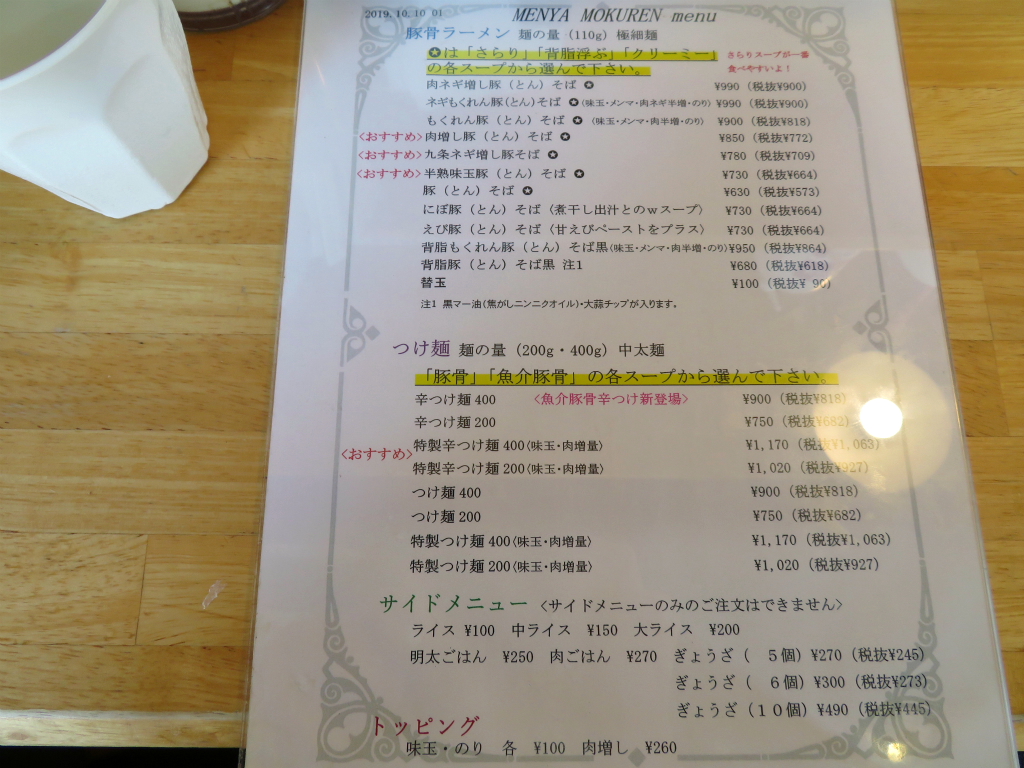 2019.10.10 01 MENYA MOKUREN menu
豚骨ラーメン 麺の量（110g）極細麺
✪は「さらり」「背脂浮ぶ」「クリーミー」
の各スープから選んで下さい。
さらりスープが一番
食べやすいよ！
肉ネギ増し豚（とん）そば ✪ ¥990（税抜¥900）
ネギもくれん豚(とん)そば ✪〈味玉・メンマ・肉ネギ半増・のり〉 ¥990（税抜¥900）
もくれん豚（とん）そば ✪ 〈味玉・メンマ・肉半増・のり〉 ¥900（税抜¥818）
〈おすすめ〉肉増し豚（とん）そば ✪ ¥850（税抜¥772）
〈おすすめ〉九条ネギ増し豚そば ✪ ¥780（税抜¥709）
〈おすすめ〉半熟味玉豚（とん）そば ✪ ¥730（税抜¥664）
豚（とん）そば ✪ ¥630（税抜¥573）
にぼ豚（とん）そば〈煮干し出汁とのｗスープ〉 ¥730（税抜¥664）
えび豚（とん）そば〈甘えびペーストをプラス〉 ¥730（税抜¥664）
背脂もくれん豚（とん）そば黒〈味玉・メンマ・肉半増・のり〉 ¥950（税抜¥864）
背脂豚（とん）そば黒 注1 ¥680（税抜¥618）
替玉 ¥100（税抜¥ 90）
注1 黒マー油(焦がしニンニクオイル)・大蒜チップが入ります。
つけ麺 麺の量（200g・400g）中太麺
「豚骨」「魚介豚骨」の各スープから選んで下さい。
辛つけ麺 400 〈魚介豚骨辛つけ新登場〉 ¥900（税抜¥818）
辛つけ麺 200 ¥750（税抜¥682）
特製辛つけ麺 400〈味玉・肉増量〉 ¥1,170（税抜¥1,063）
〈おすすめ〉特製辛つけ麺 200〈味玉・肉増量〉 ¥1,020（税抜¥927）
つけ麺 400 ¥900（税抜¥818）
つけ麺 200 ¥750（税抜¥682）
特製つけ麺 400〈味玉・肉増量〉 ¥1,170（税抜¥1,063）
特製つけ麺 200〈味玉・肉増量〉 ¥1,020（税抜¥927）
サイドメニュー 〈サイドメニューのみのご注文はできません〉
ライス ¥100 中ライス ¥150 大ライス ¥200
明太ごはん ¥250 肉ごはん ¥270 ぎょうざ（ 5個）¥270（税抜¥245）
ぎょうざ（ 6個）¥300（税抜¥273）
ぎょうざ（１０個）¥490（税抜¥445）
トッピング
味玉・のり 各 ¥100 肉増し ¥260